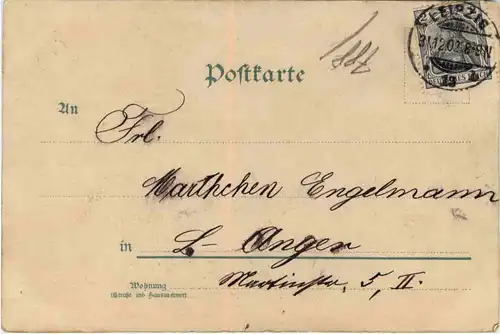 LEIPZIG
31.12.02. 8-9N
Postkarte
An
Frl.
Marthchen Engelmann
in
L- Anger
Wohnung
(Straße und Hausnummer)
Martinstr, 5, II.